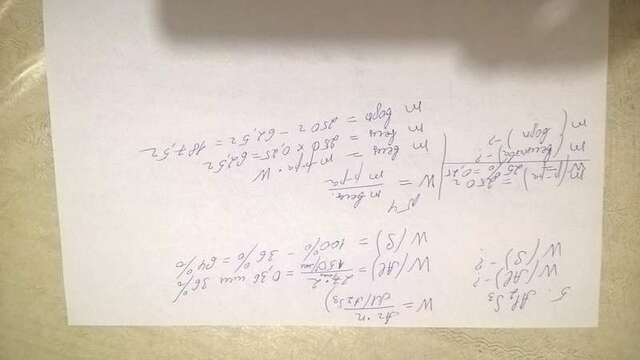 5. Al2S3
W(Al) - ?
W(S) - ?
W = Ar·n / M(Al2S3)
W(Al) = 27·2 / 150 = 0,36 или 36%
W(S) = 100% - 36% = 64%
№4
m(р-ра) = 250г
W = 25% = 0,25
m - ?
m (воды) - ?
W = m вещ. / m р-ра
m вещ = m р-ра · W
m вещ = 250 x 0,25 = 62,5г
m воды = 250г - 62,5г = 187,5г